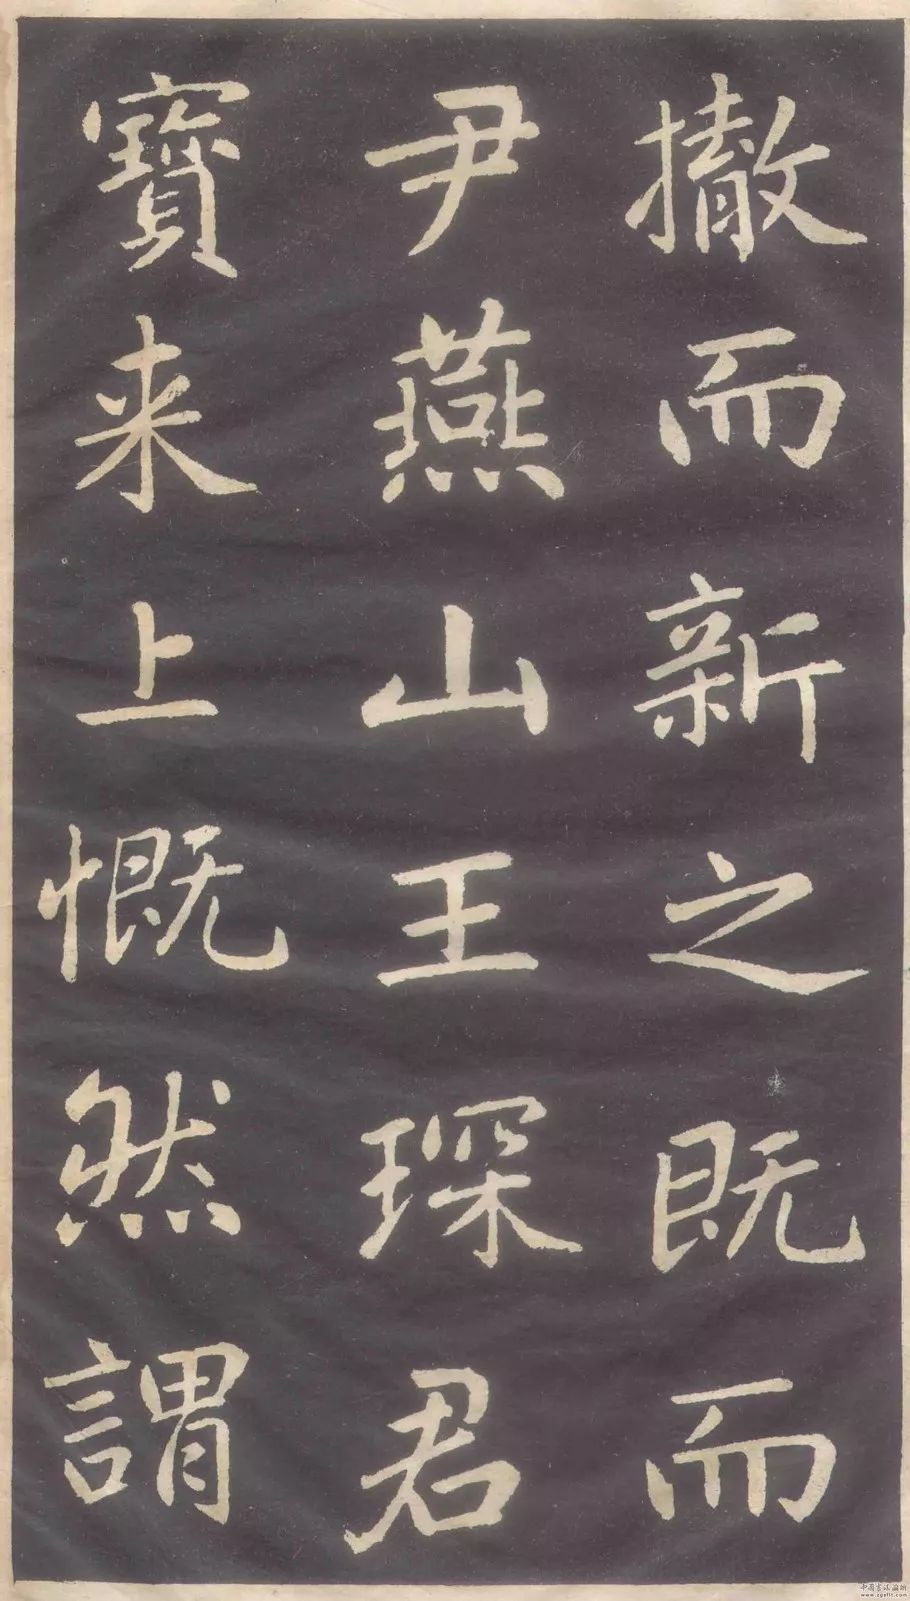 撤而新之既而
尹燕山王琛君
寶来上慨然謂
中国书法论坛
www.zgsflt.com